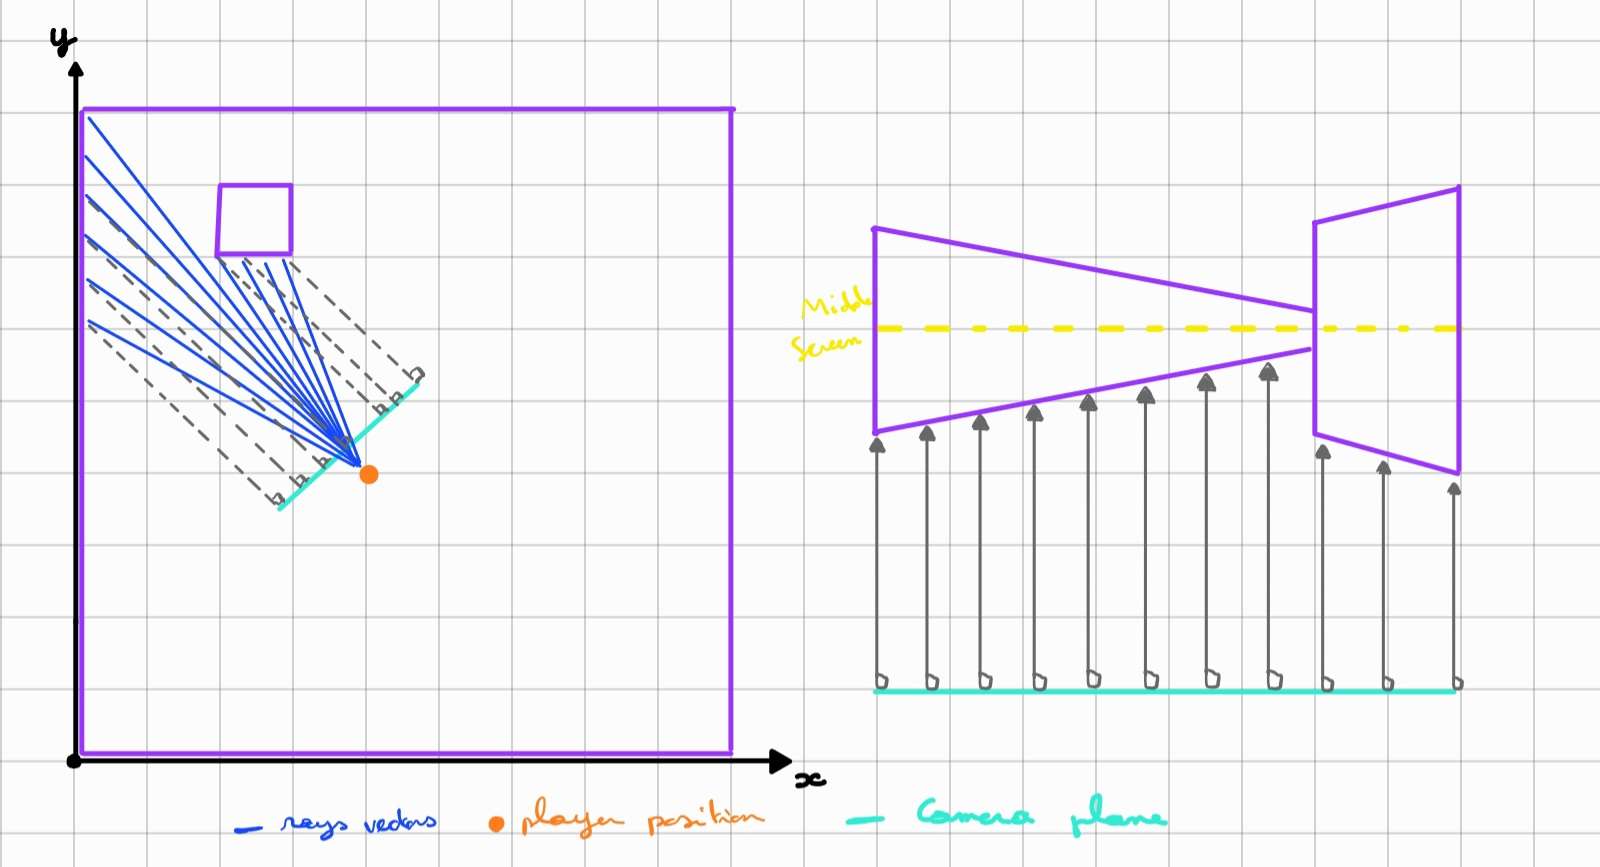 y
Middle
Screen
x
rays vectors
player position
Camera plane